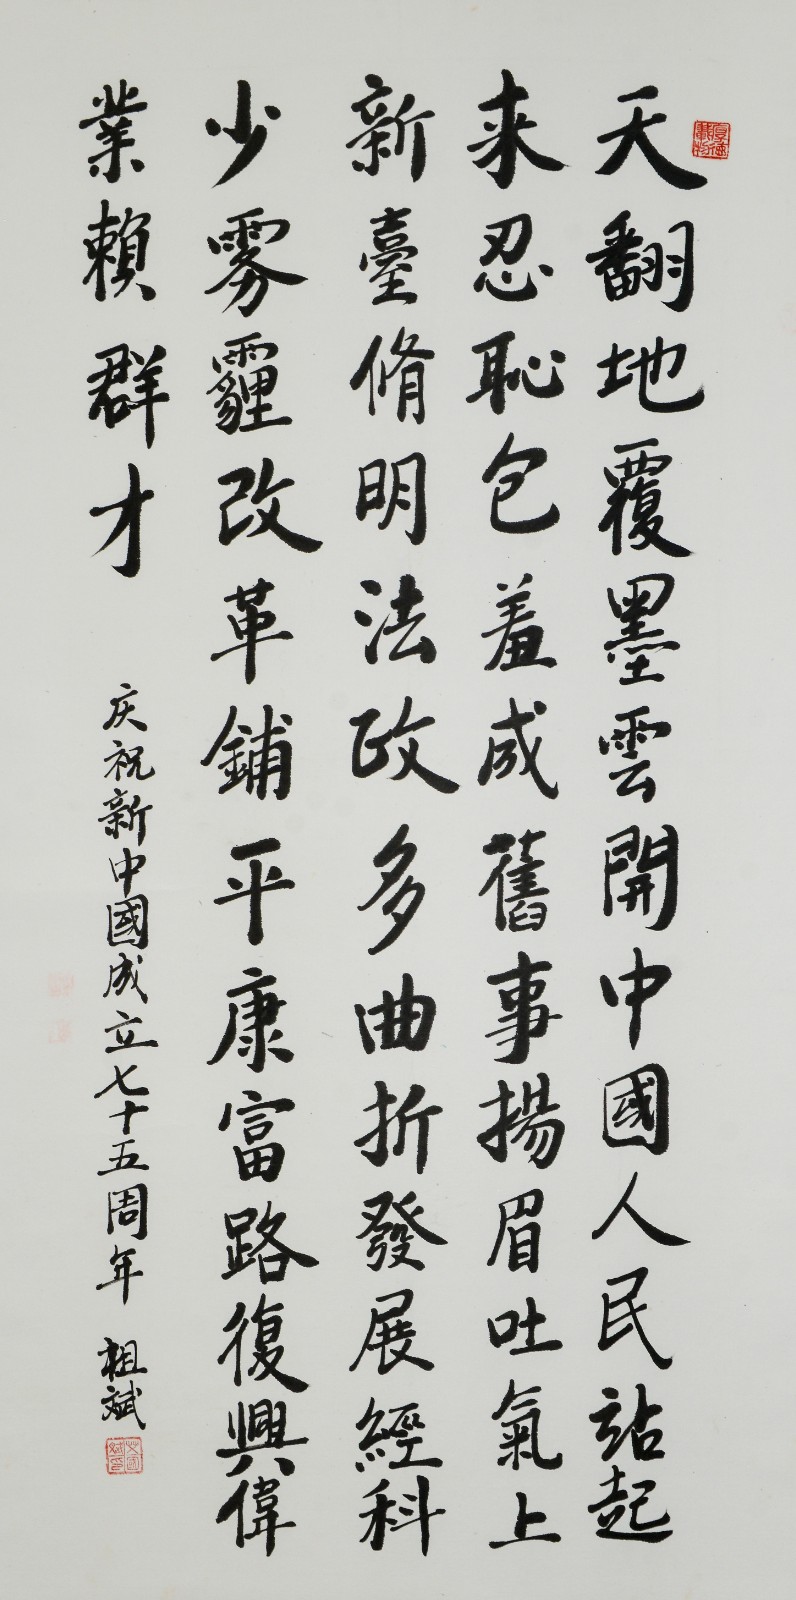 天翻地覆墨雲開中國人民站起
来忍恥包羞成舊事揚眉吐氣上
新臺脩明法政多曲折發展經科
少雾霾改革鋪平康富路復興偉
業賴群才
庆祝新中國成立七十五周年 祖斌
厚德載物